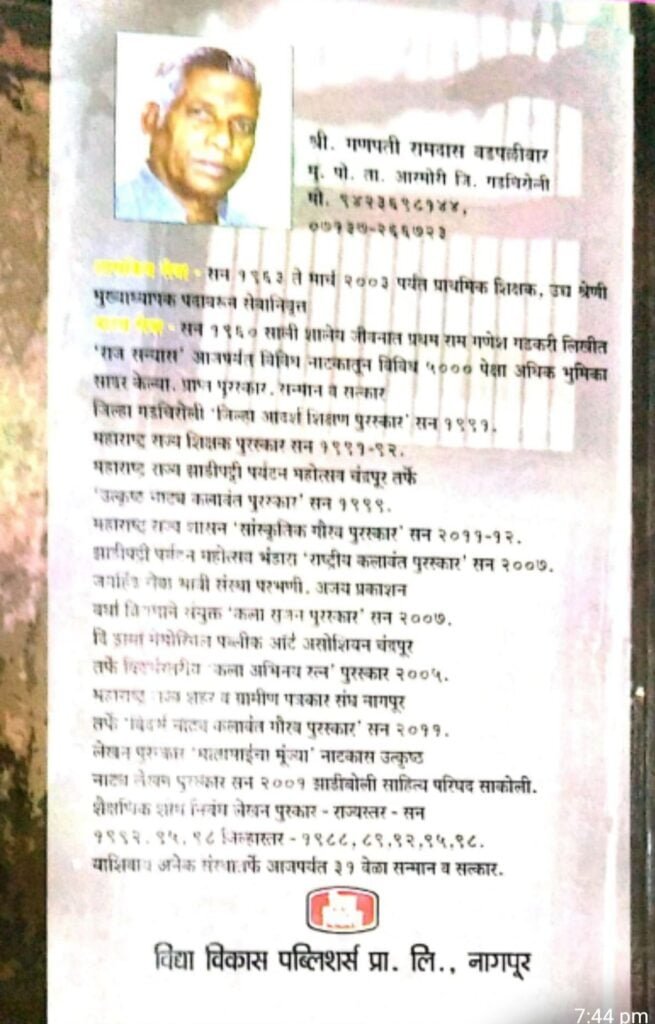 श्री. गणपती रामदास वडपल्लीवार
मु. पो. ता. आरमोरी जि. गडचिरोली
मो. ९४२३६९८१४४,
०७१३७-२६६७२३
- सन १९६३ ते मार्च २००३ पर्यंत प्राथमिक शिक्षक, उच्च श्रेणी
मुख्याध्यापक पदावरून सेवानिवृत्त
- सन १९६० साली शालेय जीवनात प्रथम राम गणेश गडकरी लिखीत
'राज सन्यास' आजपर्यंत विविध नाटकातून विविध ५००० पेक्षा अधिक भुमिका
सादर केल्या. प्राप्त पुरस्कार. सन्मान व सत्कार
जिल्हा गडचिरोली 'जिल्हा आदर्श शिक्षण पुरस्कार' सन १९९१.
महाराष्ट्र राज्य शिक्षक पुरस्कार सन १९९१-९२.
महाराष्ट्र राज्य झाडीपट्टी पर्यटन महोत्सव चंद्रपुर तर्फे
'उत्कृष्ट नाट्य कलावंत पुरस्कार' सन १९९९.
महाराष्ट्र राज्य शासन 'सांस्कृतिक गौरव पुरस्कार' सन २०११-१२.
झाडीपट्टी पर्यटन महोत्सव भंडारा 'राष्ट्रीय कलावंत पुरस्कार' सन २००७.
सेवा भावी संस्था परभणी. अजय प्रकाशन
वर्धा संयुक्त 'कला सृजन पुरस्कार' सन २००७.
दि ड्रामा पब्लीक आर्ट असोशियन चंद्रपूर
तर्फे 'कला अभिनय रत्न' पुरस्कार २००५.
महाराष्ट्र राज्य शहर व ग्रामीण पत्रकार संघ नागपूर
तर्फे 'विदर्भ नाट्य कलावंत गौरव पुरस्कार' सन २०११.
लेखन पुरस्कार नाटकास उत्कृष्ठ
नाट्य लेखन पुरस्कार सन २००१ झाडीबोली साहित्य परिषद साकोली.
शैक्षणिक शोध निबंध लेखन पुरस्कार - राज्यस्तर - सन
१९९२, ९५, ९८ जिल्हास्तर - १९८८, ८९,९२,९५,९८.
याशिवाय अनेक संस्थातर्फे आजपर्यंत ३१ वेळा सन्मान व सत्कार.
विद्या विकास पब्लिशर्स प्रा. लि., नागपूर
7:44 pm